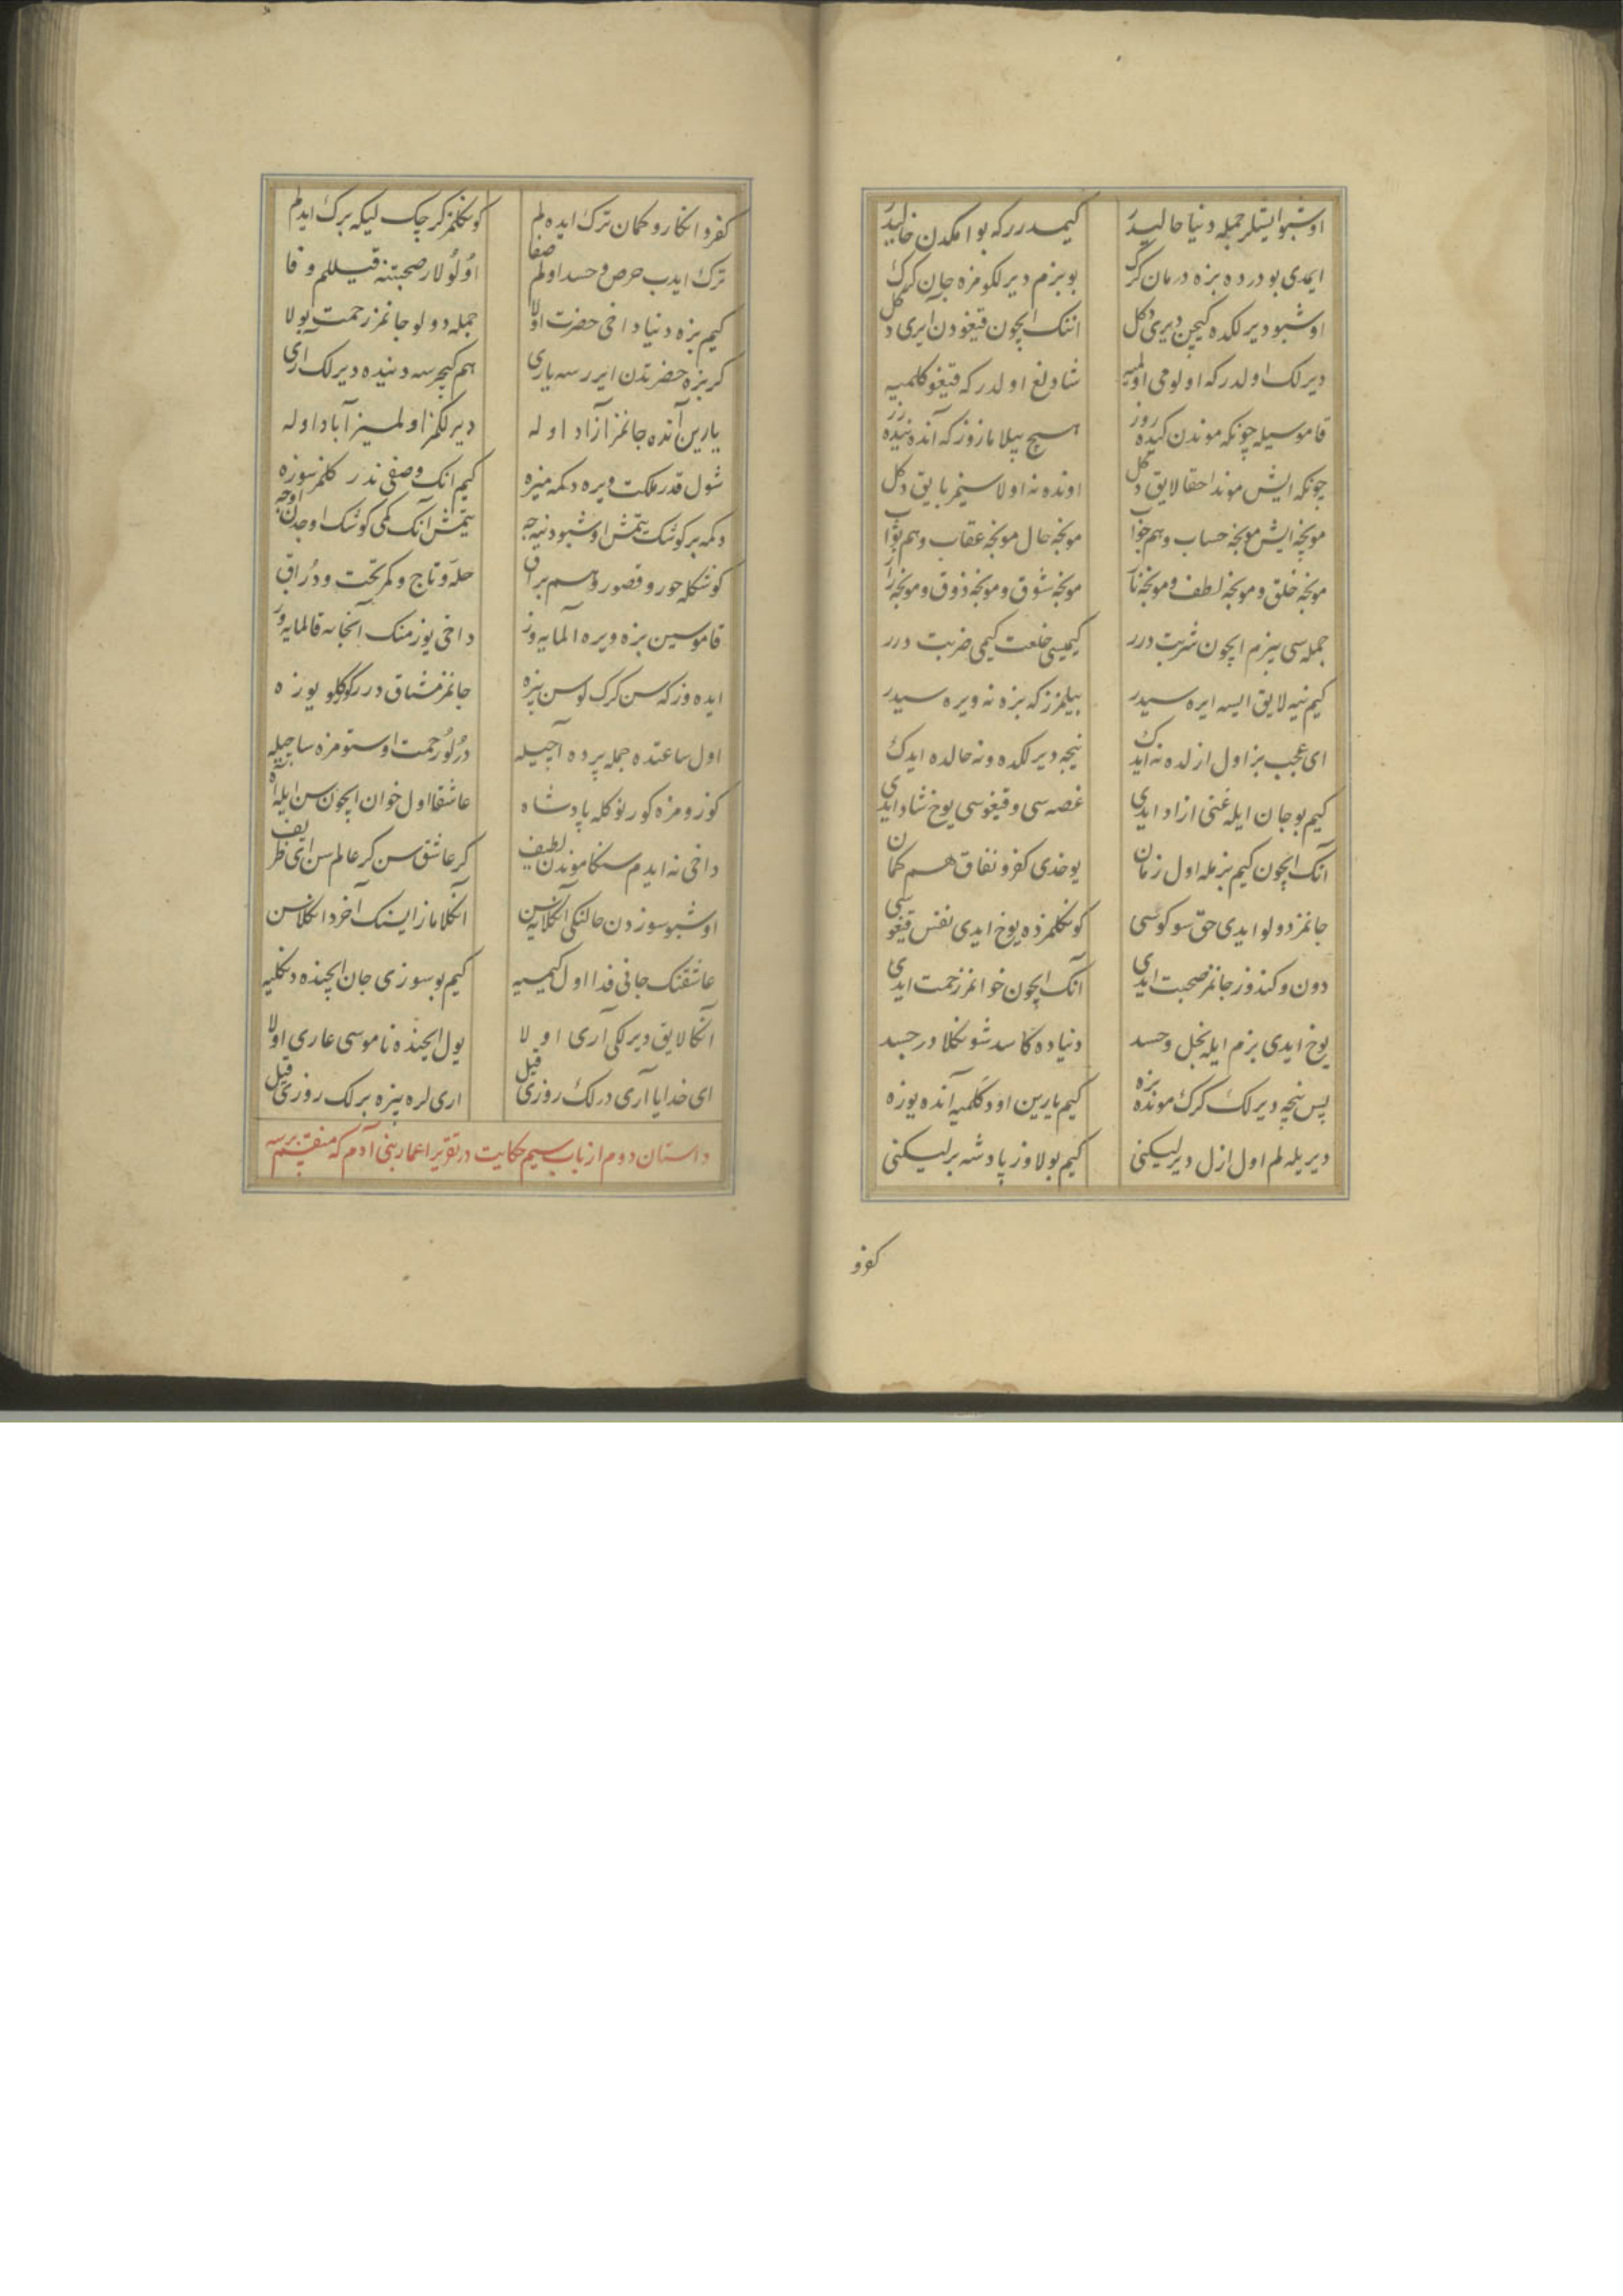 اوشبو ایشلر جمله دنیا حالیدر کیمدرر که بو امکدن خالیدر
ایمدی بو درده بزه درمان کرک بو بزم دیرلکومزه جان کرک
اوشبو دیرلکده کیچن دیری دکل اننک ایچون قیغودن آیری دکل
دیرلک اولدر که اولومی اولمیه شادلغ اولدر که قیغو کلمیه
قاموسیله چونکه موندن کیده روز هیچ بیلامازوز که آنده نیده روز
چونکه ایش موندا حقا لایق دکل اونده نه اولاسینز بایق دکل
مونجه ایش مونجه حساب و هم جواب مونجه حال مونجه عقاب و هم ثواب
مونجه خلق و مونجه لطف و مونجه ناز مونجه شوق و مونجه ذوق و مونجه راز
جمله سی بیزم ایچون شربت درر کیمیسی خلعت کیمی ضربت درر
کیم نیه لایق ایسه ایره سیدر بیلمزز که بزه نه ویره سیدر
ای عجب بز اول ازلده نه ایدک نیجه دیرلکده و نه حالده ایدک
کیم بو جان ایله غنی ازاد ایدی غصه سی و قیغوسی یوخ شاد ایدی
آنک ایچون کیم بزمله اول زمان یوخدی کفر و نفاق هم کمان
جانمز دولو ایدی حق سوکوسی کونکلمزده یوخ ایدی نفس قیغوسی
دون و کندوز جانمز صحبت ایدی آنک ایچون خوانمز رحمت ایدی
یوخ ایدی بزم ایله بخل و حسد دنیاده کاسد شونکلا در جسد
پس نیجه دیرلک کرک مونده بزه کیم یارین اود کلمیه آنده یوزه
دیریله لم اول ازل دیرلیکنی کیم بولاوز پادشه برلیکنی
کفرو
کفر و انکار و کمان ترک ایده لم کونکلمز کرچک لیکه برک ایدلم
ترک ایدب حرص و حسد اولم صفا اولولار صحبتنه قیللم وفا
کیم بزه دنیا داخی حضرت اولا جمله دولو جانمز رحمت بولا
کر بزه حضرتدن ایررسه یاری هم کیچرسه دنیده دیرلک اری
یارین آنده جانمز آزاد اوله دیرلکمز اولمیز آباد اوله
شول قدر ملکت ویره دکمه میزه کیم انک وصفی ندر کلمز سوزه
دکمه بر کوشک یتمش اوشبو دنیجه یتمش آنک کمی کوشک اوجدن اوجه
کوشکله حور و قصور و هم براق حله و تاج و کمر تخت و دراق
قاموسین بزه ویره المایه وز داخی یوز منک آنجانه قالمایه وز
ایده وز که سن کرک لوسن بیزه جانمز مشتاق درر کوکلو یوزه
اول ساعتده جمله پرده آچیله درلو رحمت اوستومزه ساچیله
کوزومزه کورنو کله پادشاه عاشقا اول خوان ایچون سن ایله آه
داخی نه ایدم سنکا موندن لطیف کر عاشق سن کر عالم سن ای ظریف
اوشبو سوزدن حالنکی آنکلایه سن آنکلاماز ایسنک آخر دانکلاسن
عاشقنک جانی فدا اول کیمیه کیم بو سوزی جان ایچنده دنکلیه
آنکا لایق دیرلکی آری اولا یول ایچنده ناموسی عاری اولا
ای خدایا آری درلک روزی قیل اری لره بیزه برلک روزی قیل
داستان دوم از باب سیم حکایت در تقریر اعمار بنی آدم که منقسم برسه